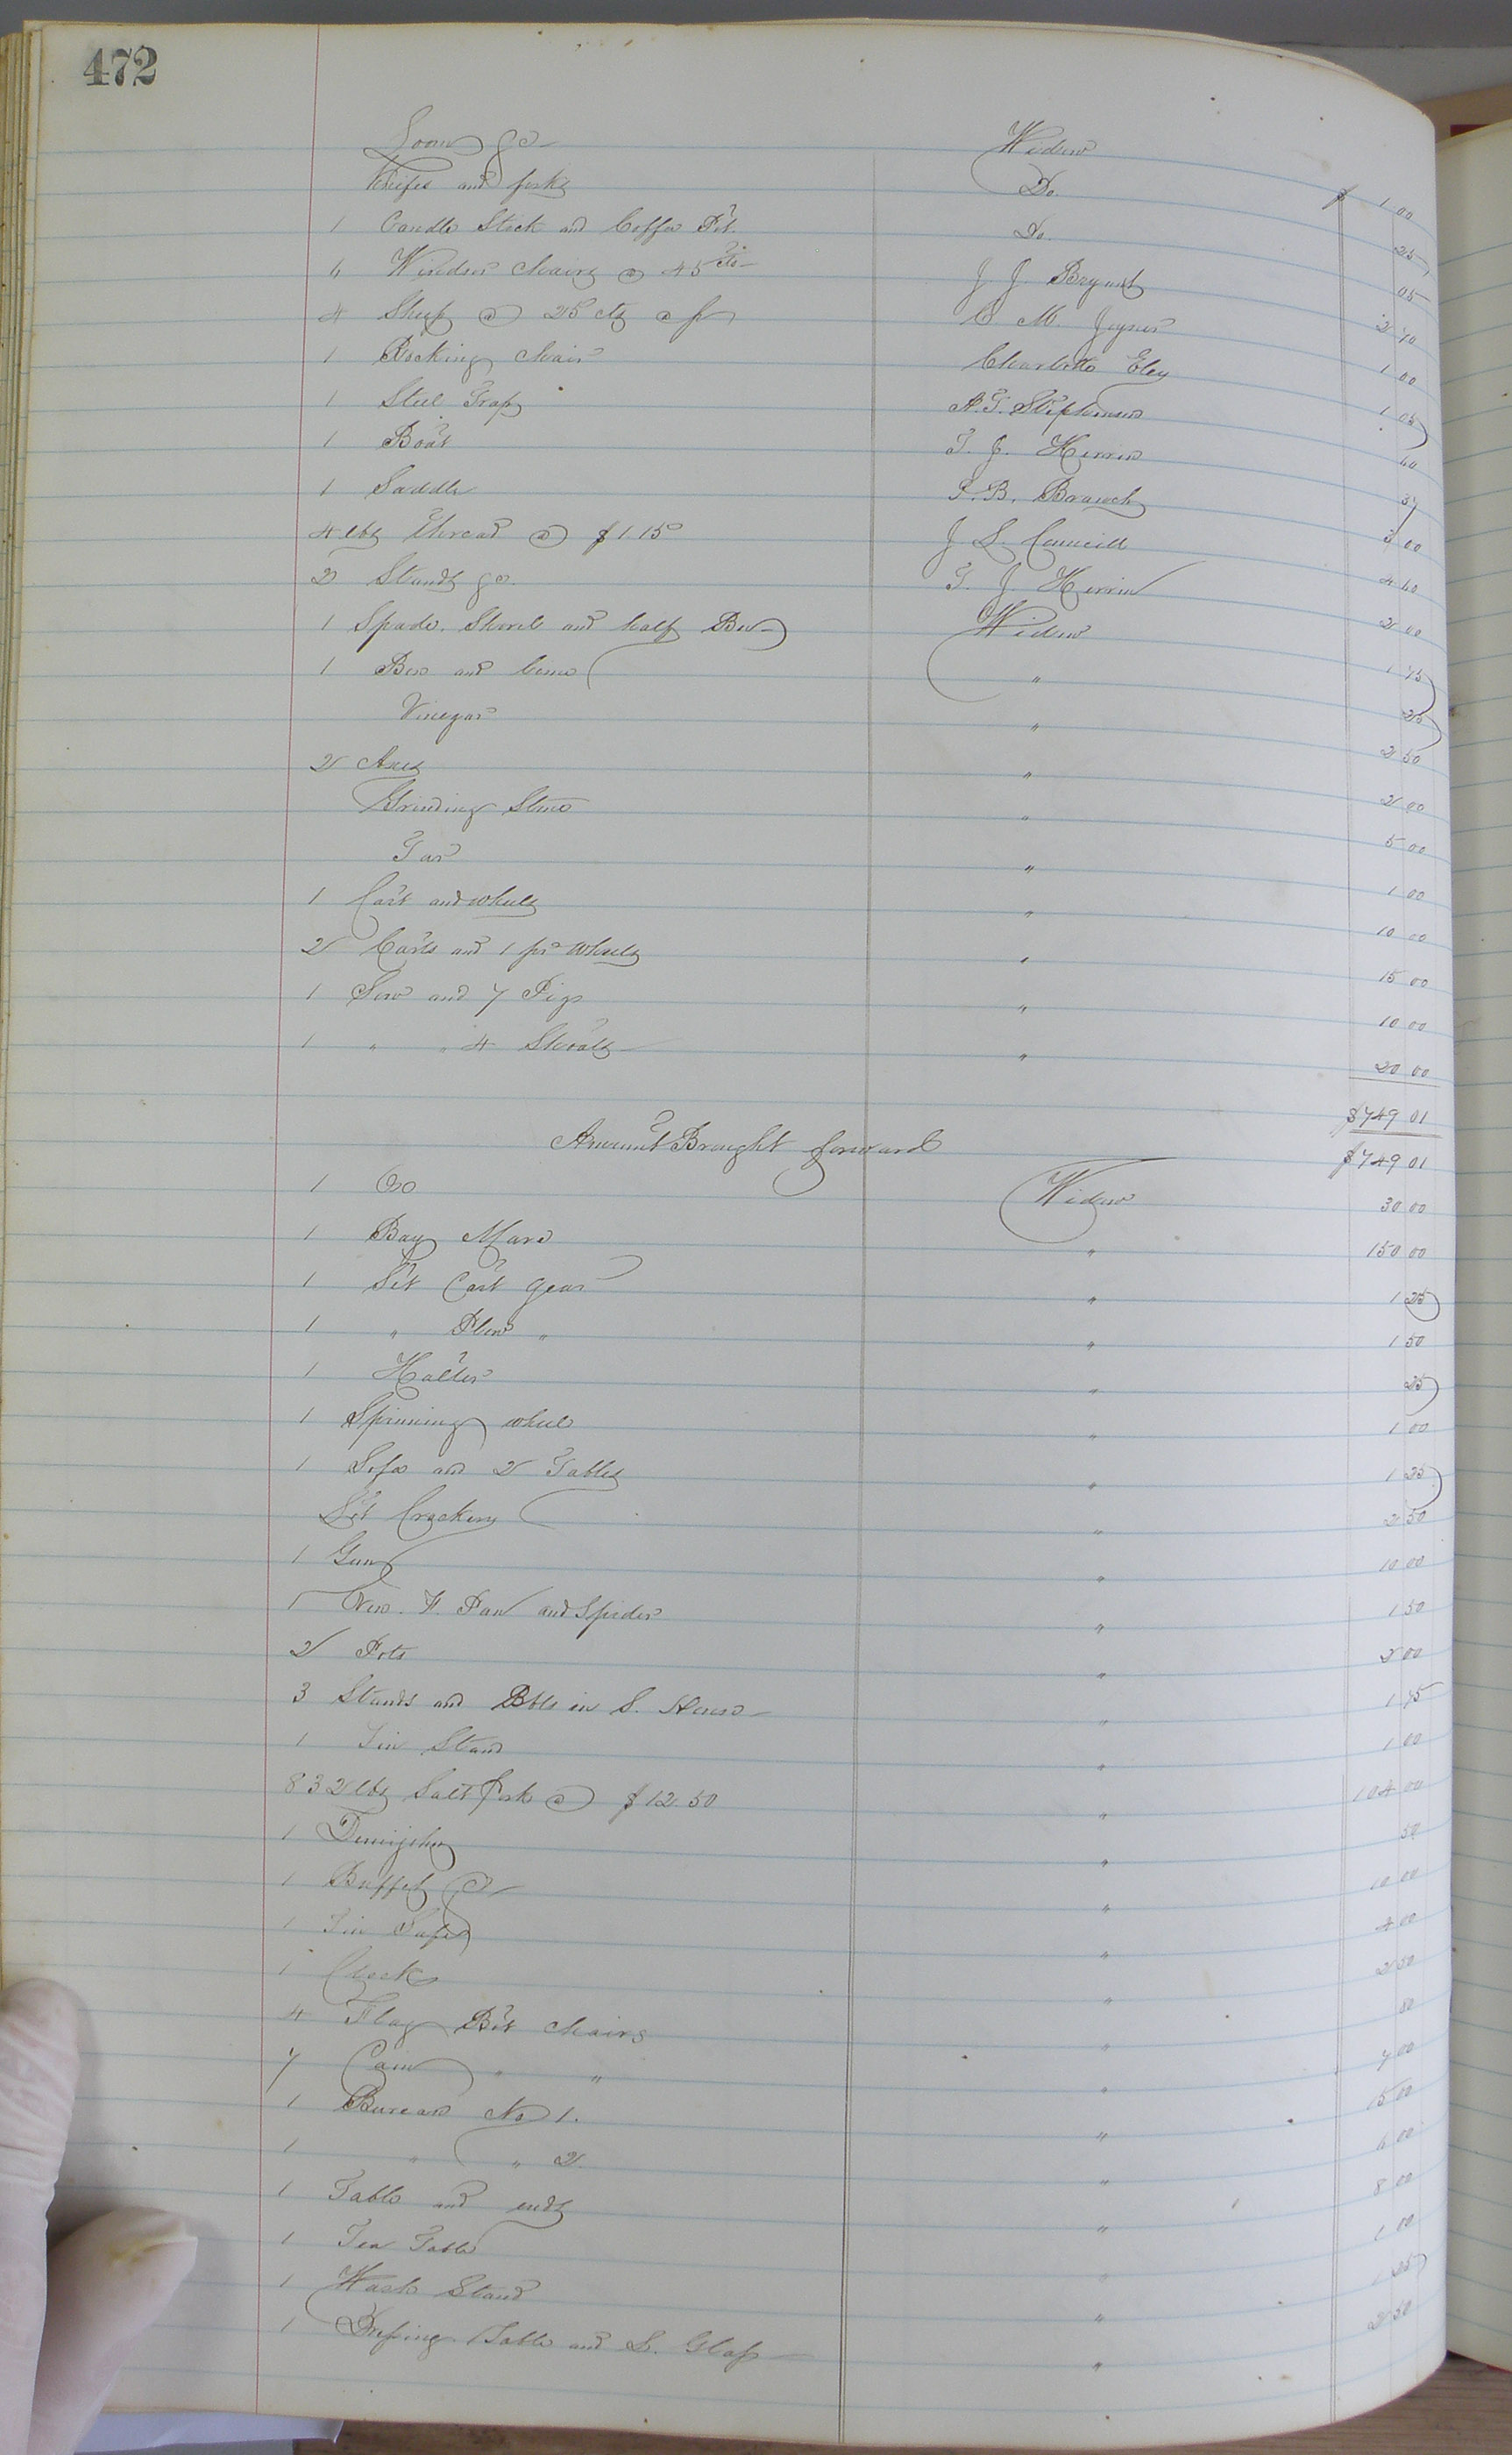 472
Loom &c Widow $ 1 00
Knifes and forks Do. 25
1 Candle Stick and Coffee Pot. Do. 05
6 Windsor Chairs @ 45 cts J J Bryant 2 70
4 Sheep @ 25 cts a p C M. Joyner 1 00
1 Rocking Chair Charlotte Eley 1 05
1 Steel Trap A. T. Stephenson 60
1 Boat T. J. Herrin 37
1 Saddle P. B. Branch 3 00
4 lbs thread @ $1 15 J L. Councill 4 60
2 Stands &c. T. J Herrin 2 00
1 Spade. Shovel and half Bu Widow 1 75
1 Box and " 25
Vinegar " 2 50
2 Axes " 2 00
Grinding Stone " 5 00
Tar " 1 00
1 Cart and wheels " 10 00
2 Carts and 1 pr wheels " 15 00
1 Sow and 7 Pigs " 10 00
1 " " 4 Shoats " 20 00
$749 01
Amount Brought forward $749 01
1 Ox Widow 30 00
1 Bay Mare " 150 00
1 Set Cart Gear " 1 25
1 " Plow " " 1 50
1 Halter " 25
1 Spinning wheel " 1 00
1 Sofa and 2 Tables " 1 25
Set Crockery " 2 50
1 Gun " 10 00
1 Oven. F. Pan and Spider " 1 50
2 Pots " 2 00
3 Stands and Bbls in S. House " 1 75
1 Tin Stand " 1 00
832 lbs Salt Pork @ $12.50 " 104 00
1 Demijohn " 50
1 Buffet &c " 10 00
1 Tin Safe " 4 00
1 Clock " 2 50
4 Flag Bot Chairs " 80
7 Cain " " " 7 00
1 Bureau No 1. " 15 00
1 " " 2. " 6 00
1 Table and ends " 8 00
1 Tea Table " 1 00
1 Wash Stand " 1 25
1 Dressing Table and L. Glass " 2 50